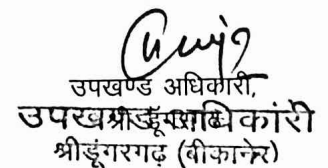 उपखण्ड अधिकारी,
उपखण्ड अधिकारी
श्रीडूंगरगढ़
श्रीडूंगरगढ़ (बीकानेर)